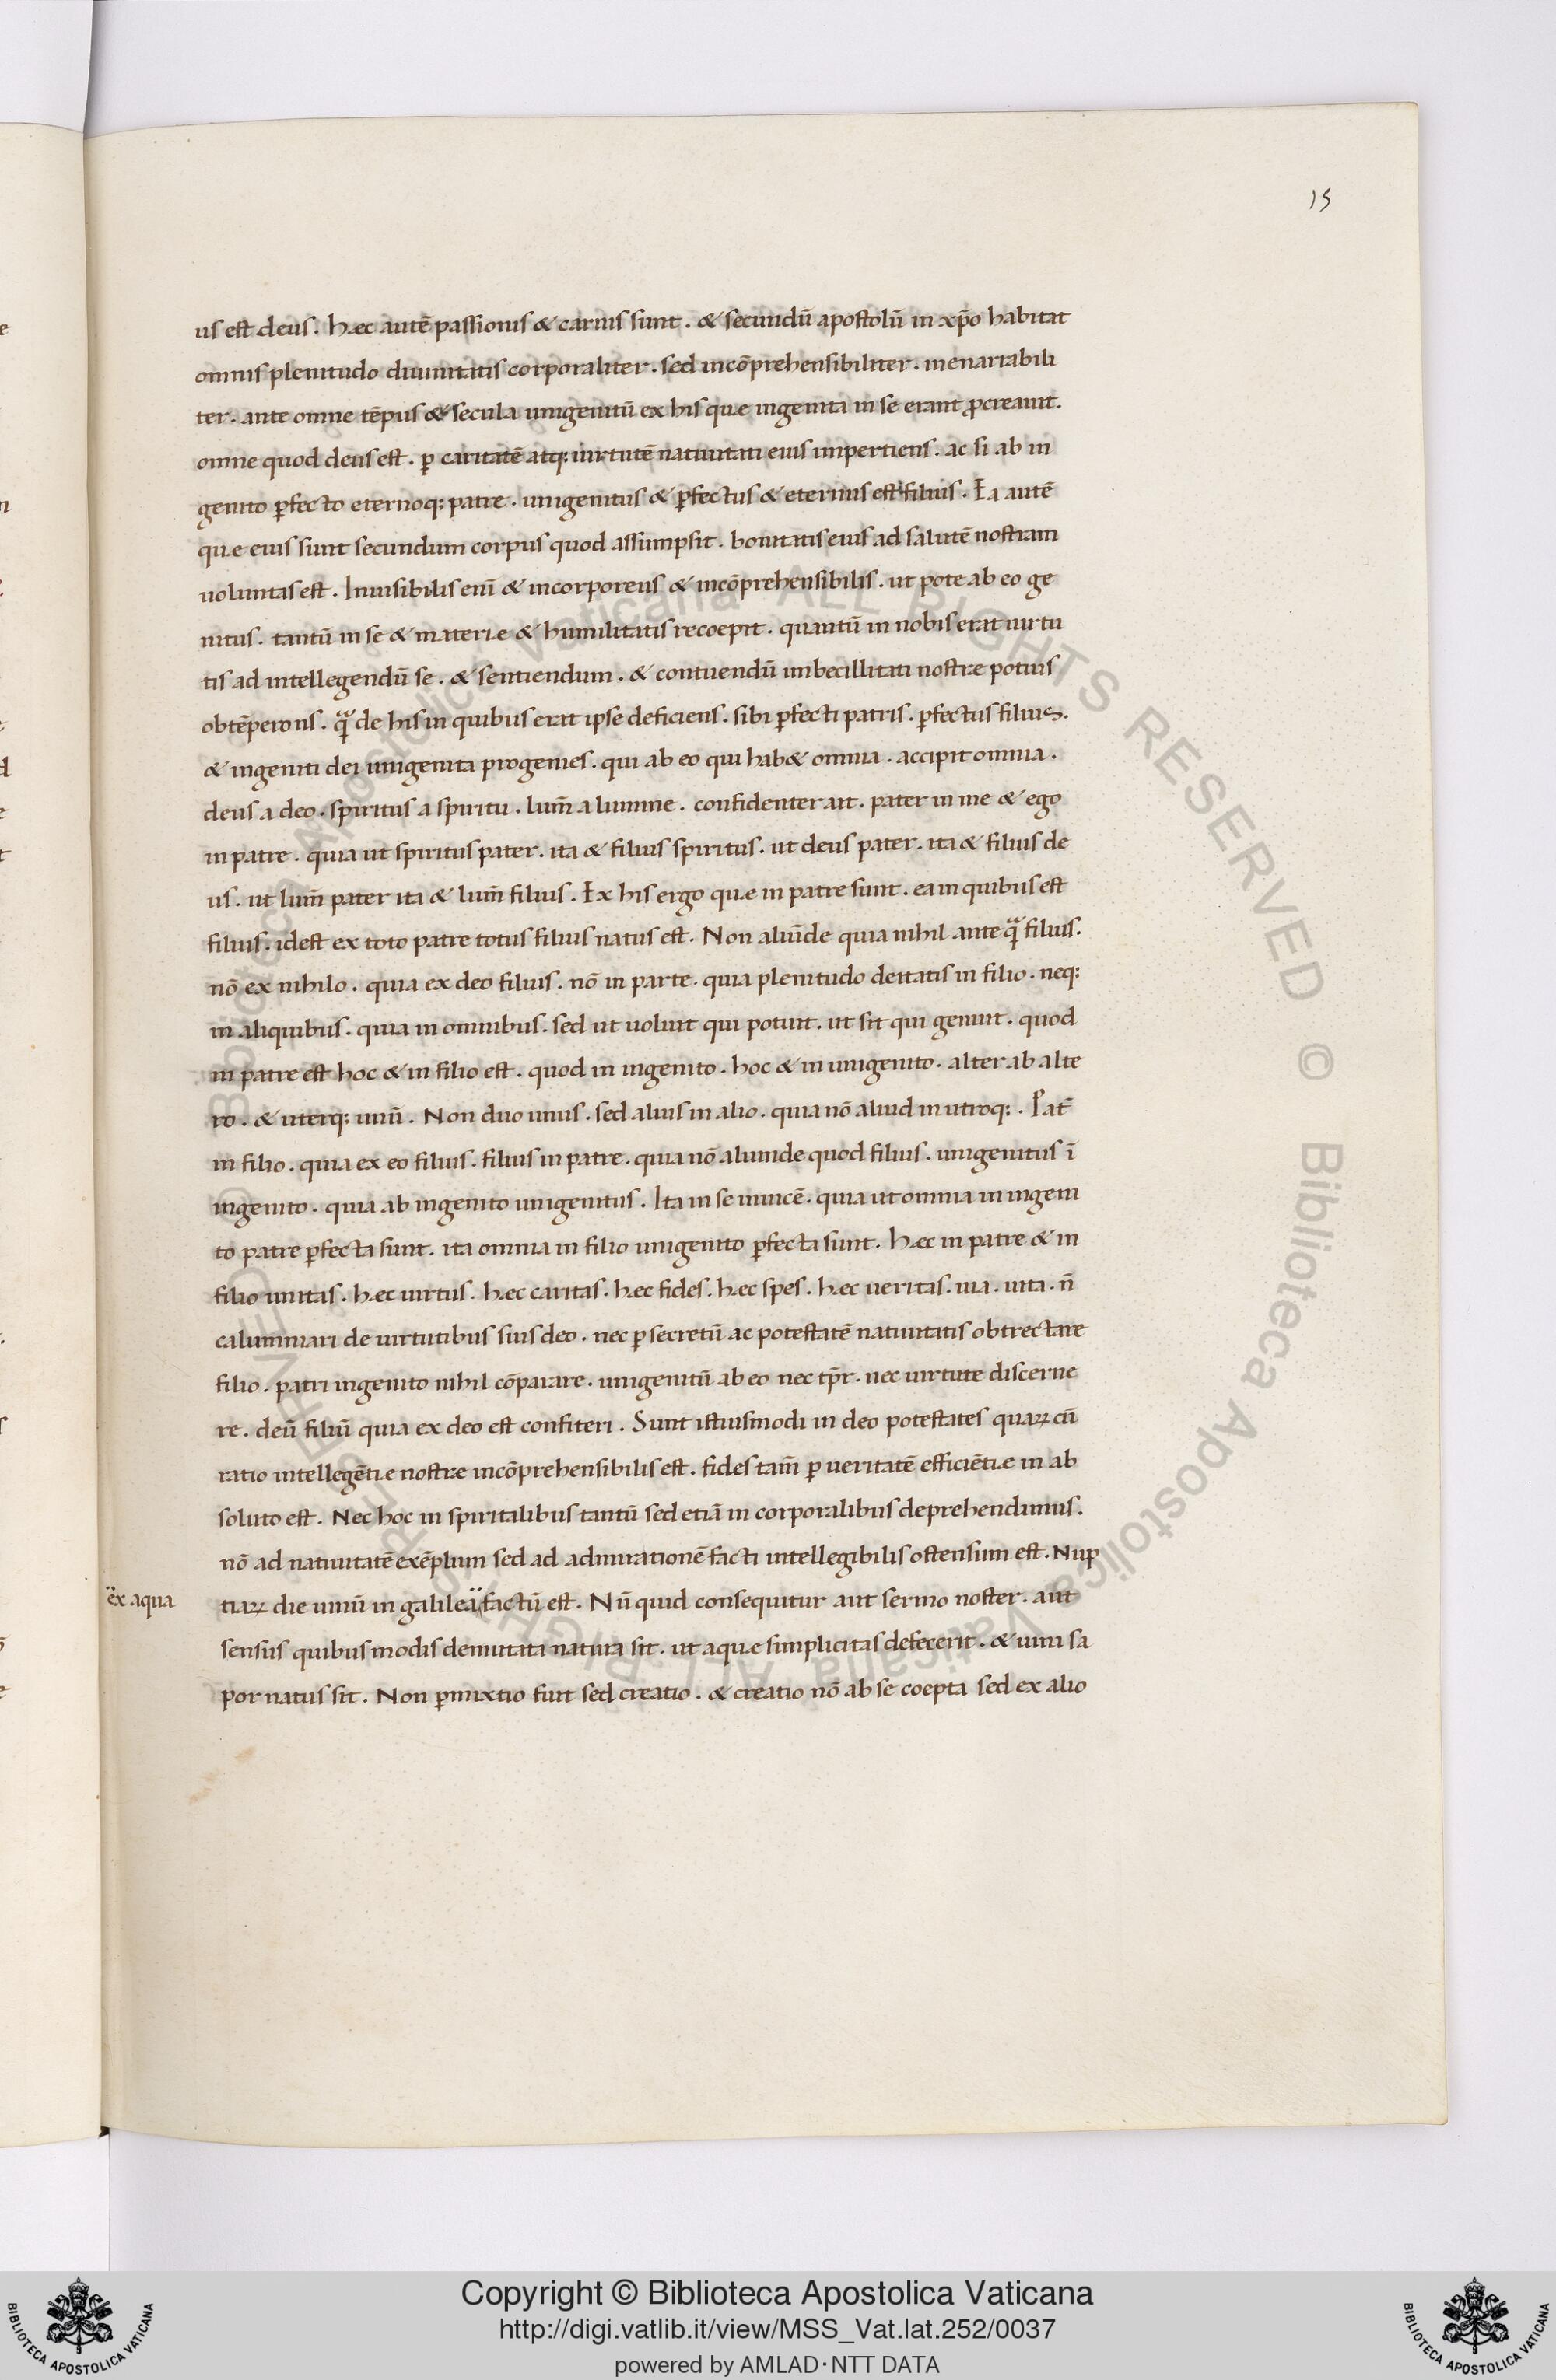 15
us est deus. hæc autē passionis & carnis sunt. & secundū apostolū in xp̄o habitat
omnis plenitudo diuinitatis corporaliter. sed incōprehensibiliter. inenarrabili
ter. ante omne tēpus & secula unigenitū ex his quæ ingenita in se erant ꝓcreauit.
omne quod deus est. ꝑ caritatē atq; uirtutē natiuitati eius impertiens. ac si ab in
genito ꝑfecto eternoq; patre. unigenitus & ꝑfectus & eternus est filius. Ea autē
quæ eius sunt secundum corpus quod assumpsit. bonitatis eius ad salutē nostram
uoluntas est. Inuisibilis eni̅ & incorporeus & incōprehensibilis. ut pote ab eo ge
nitus. tantū in se & materiæ & humilitatis recoepit. quantū in nobis erat uirtu
tis ad intellegendū se. & sentiendum. & contuendū imbecillitati nostræ potius
obtēperans. q̃ de his in quibus erat ipse deficiens. sibi ꝑfecti patris. ꝑfectus filius.
& ingeniti dei unigenita progenies. qui ab eo qui hab& omnia. accipit omnia.
deus a deo. spiritus a spiritu. lum̄ a lumine. confidenter ait. pater in me & ego
in patre. quia ut spiritus pater. ita & filius spiritus. ut deus pater. ita & filius de
us. ut lum̄ pater ita & lum̄ filius. Ex his ergo quæ in patre sunt. ea in quibus est
filius. idest ex toto patre totus filius natus est. Non aliūde quia nihil ante q̃ filius.
nō ex nihilo. quia ex deo filius. nō in parte. quia plenitudo deitatis in filio. neq;
in aliquibus. quia in omnibus. sed ut uoluit qui potuit. ut sit qui genuit. quod
in patre est hoc & in filio est. quod in ingenito. hoc & in unigenito. alter ab alte
ro. & uterq; unū. Non duo unus. sed alius in alio. quia nō aliud in utroq;. Pat̄
in filio. quia ex eo filius. filius in patre. quia nō aliunde quod filius. unigenitus ī
ingenito. quia ab ingenito unigenitus. Ita in se inuicē. quia ut omnia in ingeni
to patre ꝑfecta sunt. ita omnia in filio unigenito ꝑfecta sunt. hæc in patre & in
filio unitas. hæc uirtus. hæc caritas. hæc fides. hæc spes. hæc ueritas. uia. uita. n̄
calumniari de uirtutibus suis deo. nec ꝑ secretū ac potestatē natiuitatis obtrectare
filio. patri ingenito nihil cōparare. unigenitū ab eo nec tp̄r. nec uirtute discerne
re. deū filiū quia ex deo est confiteri. Sunt istiusmodi in deo potestates quaꝝ cū
ratio intellegētiæ nostræ incōprehensibilis est. fides tam̄ ꝑ ueritatē efficiētiæ in ab
soluto est. Nec hoc in spiritalibus tantū sed etiā in corporalibus deprehendimus.
nō ad natiuitatē exēplum sed ad admirationē facti intellegibilis ostensum est. Nup
ex aqua
tiaꝝ die uinū in galilea factū est. Nū quid consequitur aut sermo noster. aut
sensus quibus modis demutata natura sit. ut aquæ simplicitas defecerit. & uini sa
por natus sit. Non ꝑmixtio fuit sed creatio. & creatio nō ab se coepta sed ex alio
Copyright © Biblioteca Apostolica Vaticana
http://digi.vatlib.it/view/MSS_Vat.lat.252/0037
powered by AMLAD·NTT DATA